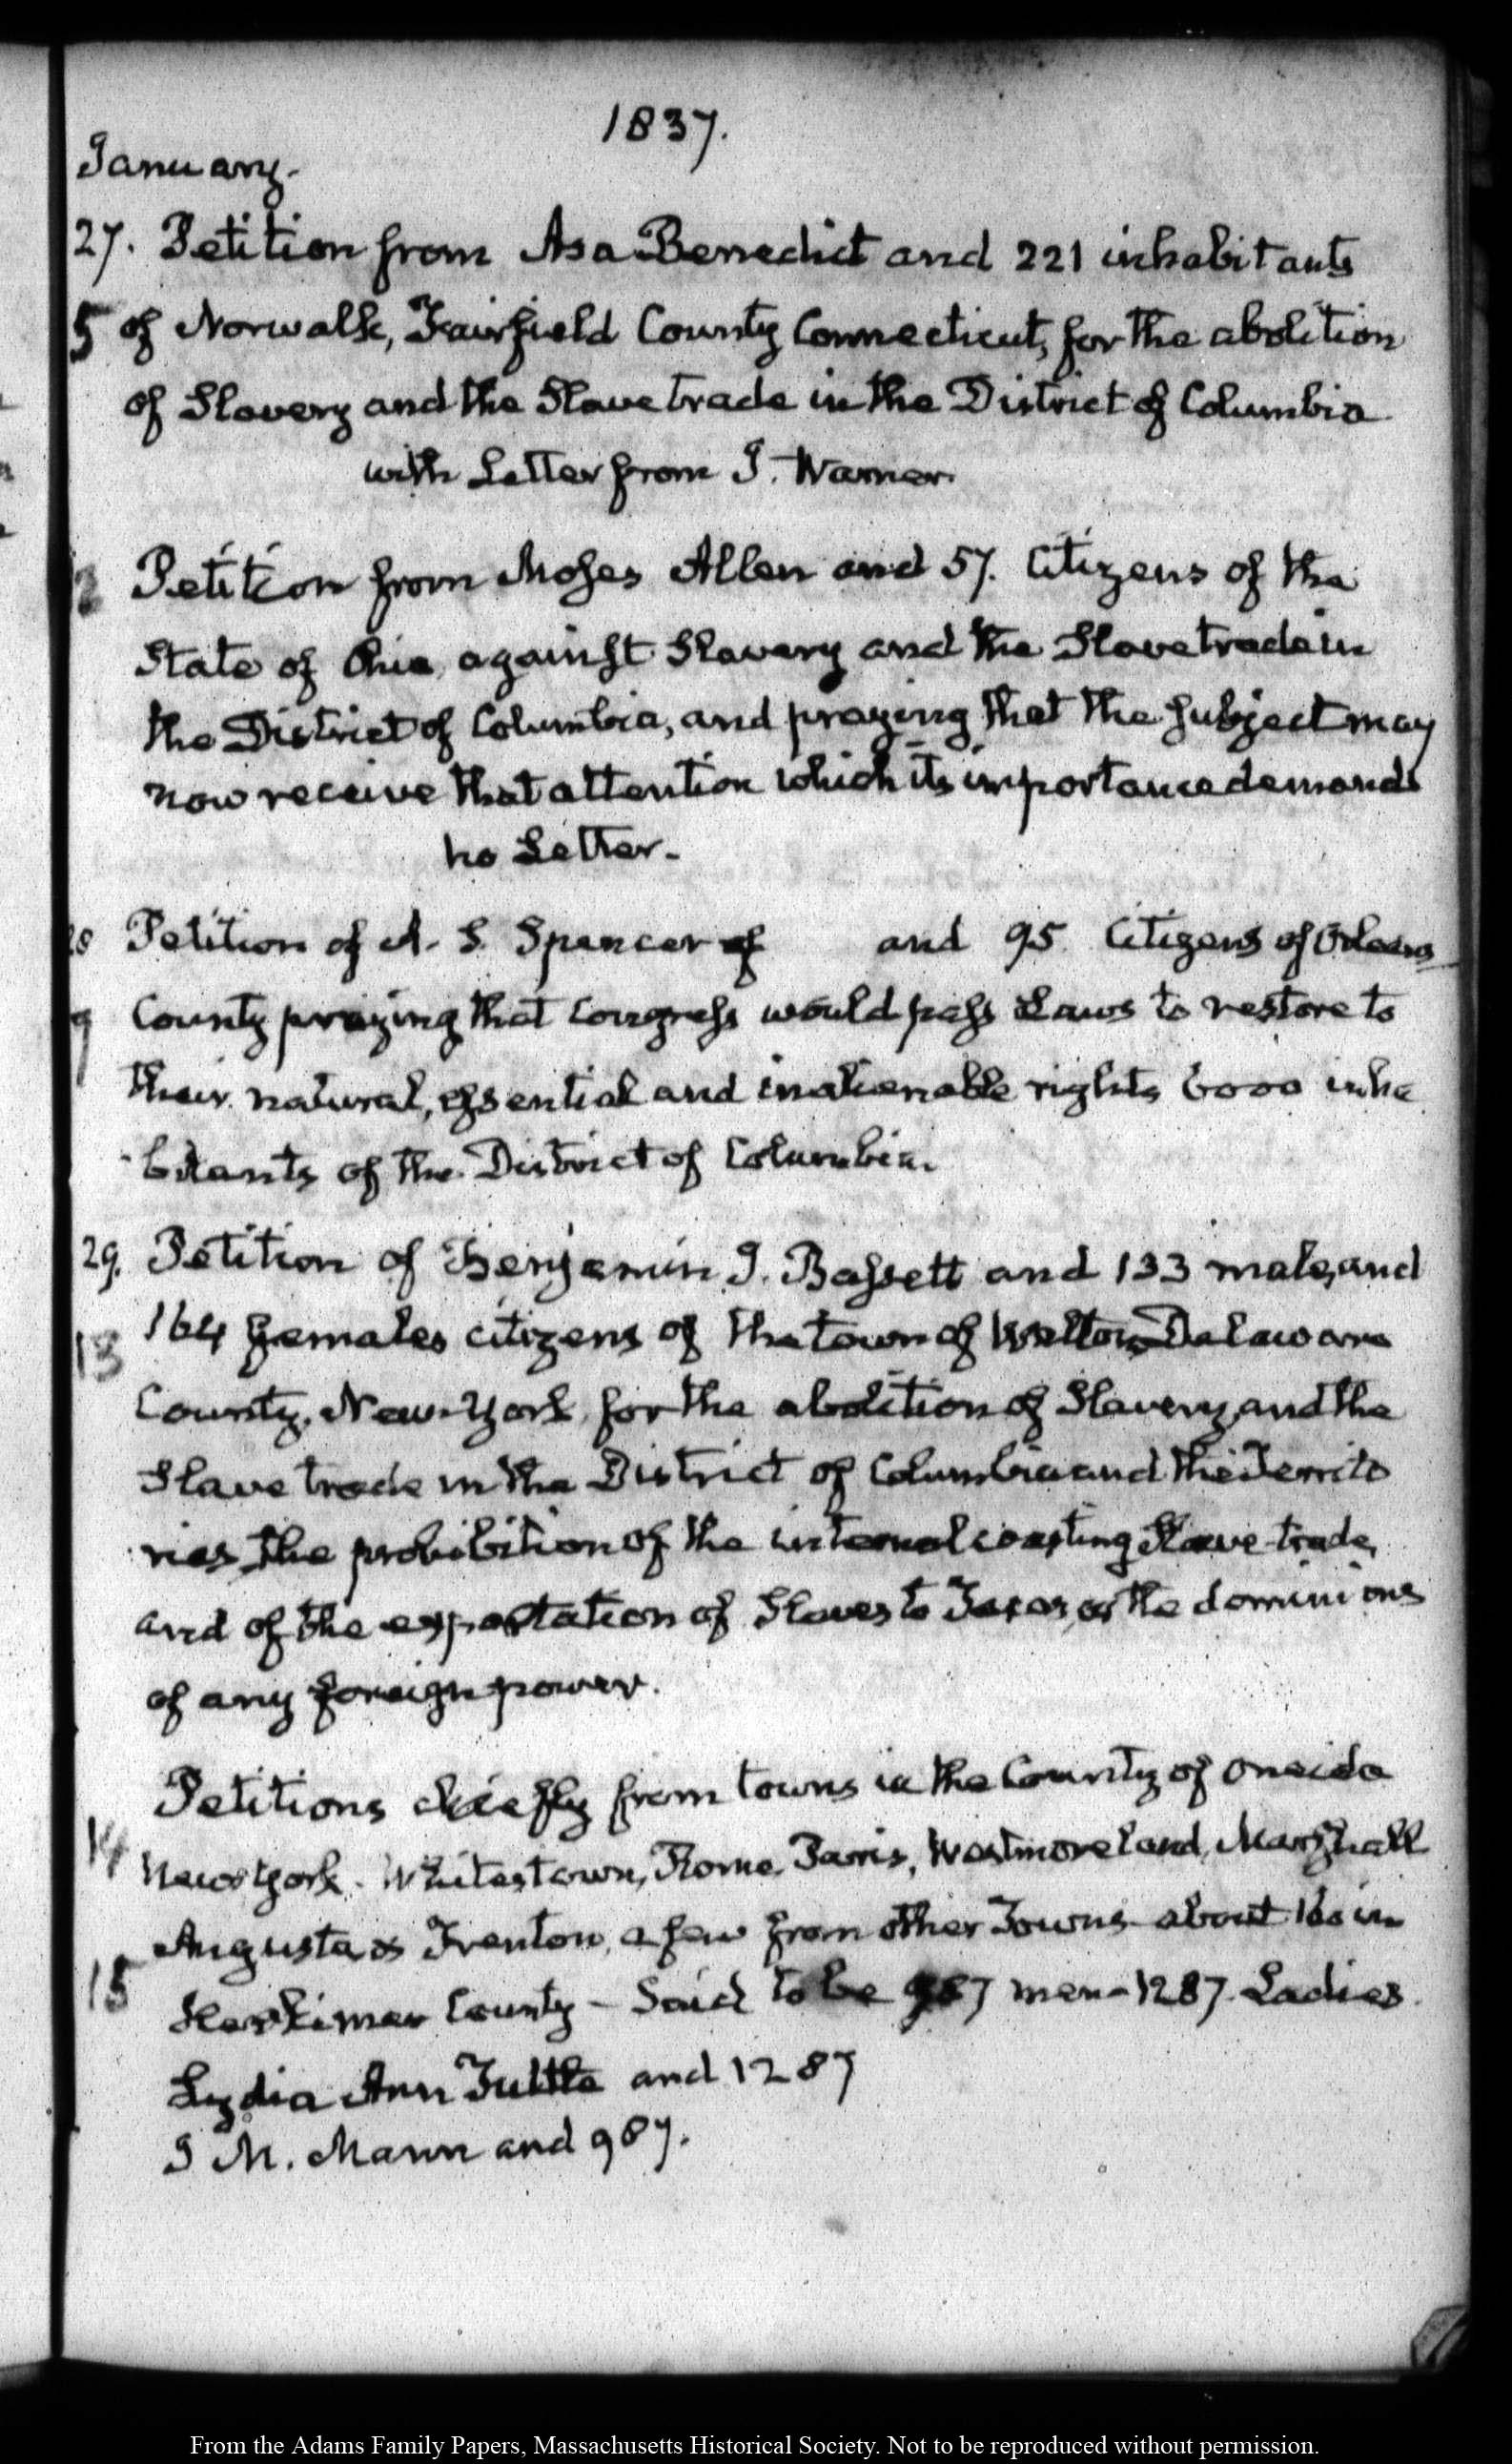 1837.
January.
27. Petition from Asa Benedict and 221 inhabitants
5 of Norwalk, Fairfield County Connecticut, for the abolition
of Slavery and the Slave trade in the District of Columbia
with Letter from J. Warner.
Petition from Moses Allen and 57. Citizens of the
State of Ohio, against Slavery and the Slave trade in
the District of Columbia, and praying that the subject may
now receive that attention which its importance demands
no Letter.
28 Petition of A. S. Spencer of and 95 Citizens of Orleans
9 County praying that Congress would pass Laws to restore to
their natural, essential and inalienable rights 6000 inha
bitants of the District of Columbia.
29. Petition of Benjamin J. Bassett and 133 males, and
13 164 females citizens of the town of Walton Delaware
County, New-York, for the abolition of Slavery, and the
Slave trade in the District of Columbia and the Territo
ries, the prohibition of the internal coasting Slave-trade,
and of the exportation of Slaves to Texas, or the dominions
of any foreign power.
Petitions chiefly from towns in the County of Oneida
14 New York. Whitestown, Rome, Parris, Westmoreland, Marshall
Augusta & Trenton, a few from other Towns about 160 in
15 Herkimer County - Said to be 987 men - 1287. Ladies.
Lydia Ann Tuttle and 1287
J M. Mann and 987.
From the Adams Family Papers, Massachusetts Historical Society. Not to be reproduced without permission.